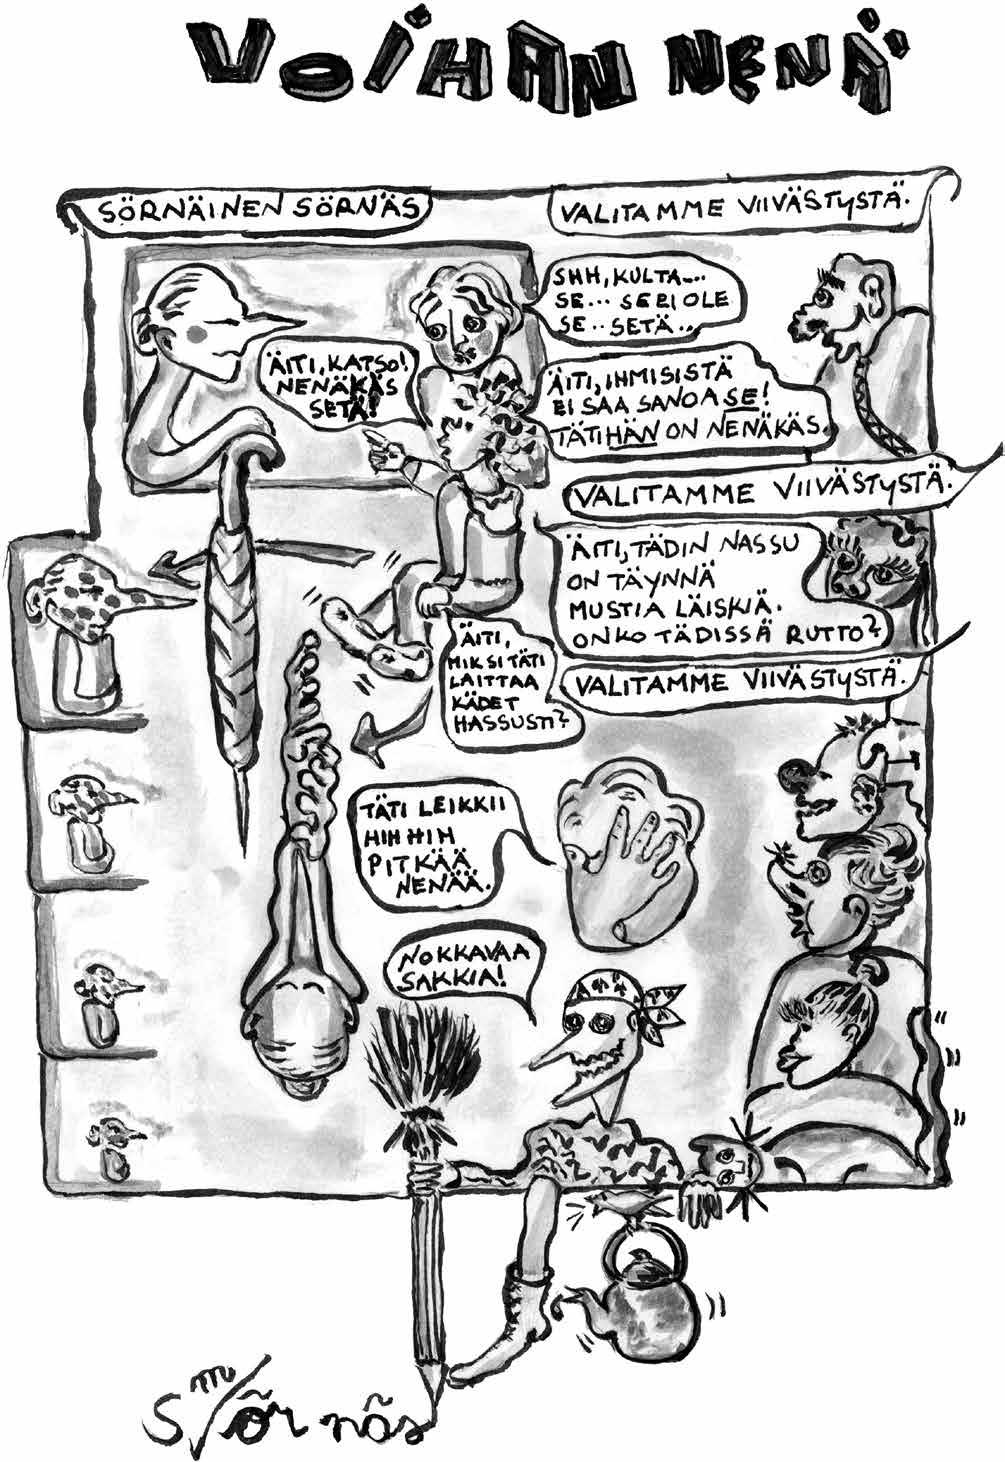 VOIHAN NENÄ
SÖRNÄINEN SÖRNÄS
VALITAMME VIIVÄSTYSTÄ.
SHH, KULTA....
SE... SE EI OLE
SE.. SETÄ..
ÄITI, KATSO!
NENÄKÄS
SETÄ!
ÄITI, IHMISISTÄ
EI SAA SANOA SE!
TÄTI HÄN ON NENÄKÄS.
VALITAMME VIIVÄSTYSTÄ.
ÄITI, TÄDIN NASSU
ON TÄYNNÄ
MUSTIA LÄISKIÄ.
ONKO TÄDISSÄ RUTTO?
ÄITI,
MIKSI TÄTI
LAITTAA
KÄDET
HASSUSTI?
VALITAMME VIIVÄSTYSTÄ.
TÄTI LEIKKII
HIH HIH
PITKÄÄ
NENÄÄ.
NOKKAVAA
SAKKIA!
S m/ör näs